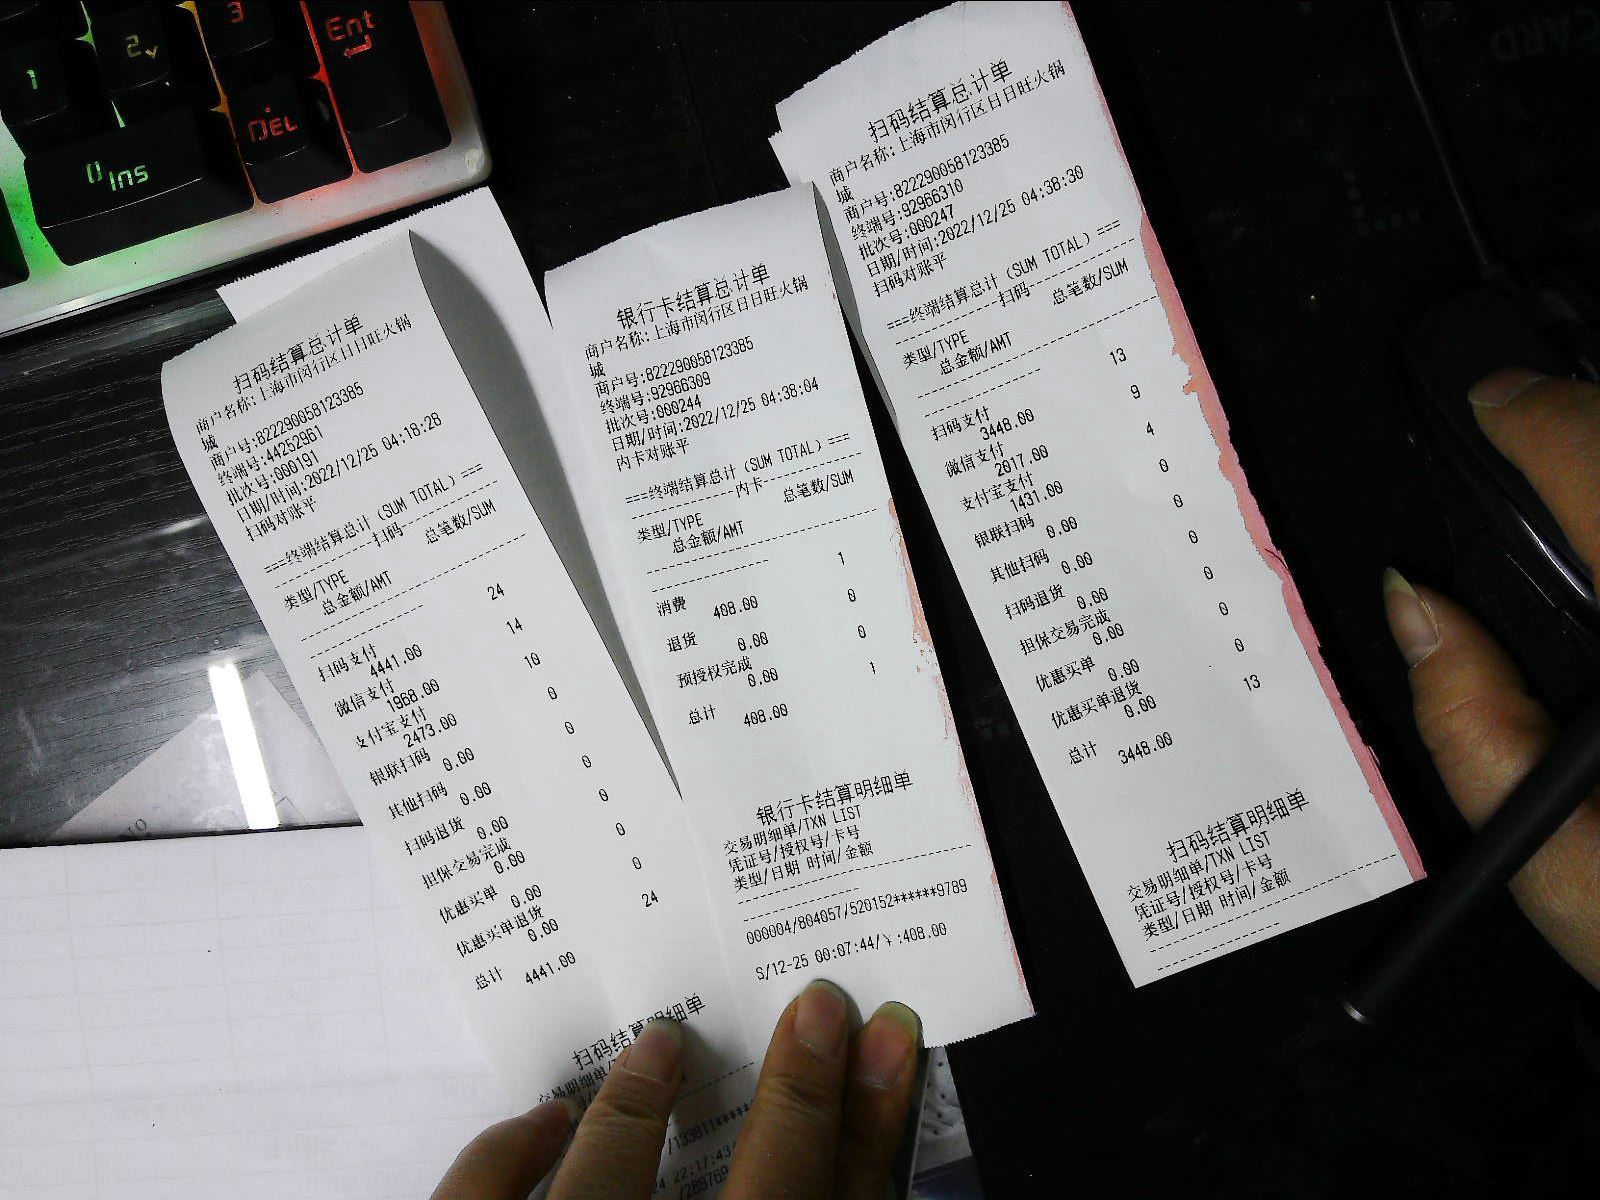 1
2
3
Ent
0 Ins
DEL
扫码结算总计单
商户名称:上海市闵行区日日旺火锅
城
商户号:822290058123385
终端号:44252961
批次号:000191
日期/时间:2022/12/25 04:18:28
扫码对账平
===终端结算总计(SUM TOTAL)===
----------扫码----------
类型/TYPE 总笔数/SUM
总金额/AMT
扫码支付 24
4441.00
微信支付 14
1968.00
支付宝支付 10
2473.00
银联扫码 0
0.00
其他扫码 0
0.00
扫码退货 0
0.00
担保交易完成 0
0.00
优惠买单 0
0.00
优惠买单退货 0
0.00
总计 24
4441.00
扫码结算明细单
交易明细单/
银行卡结算总计单
商户名称:上海市闵行区日日旺火锅
城
商户号:822290058123385
终端号:92966309
批次号:000244
日期/时间:2022/12/25 04:38:04
内卡对账平
===终端结算总计(SUM TOTAL)===
----------内卡----------
类型/TYPE 总笔数/SUM
总金额/AMT
消费 1
408.00
退货 0
0.00
预授权完成 0
0.00
总计 1
408.00
银行卡结算明细单
交易明细单/TXN LIST
凭证号/授权号/卡号
类型/日期 时间/金额
000004/804057/520152******9789
S/12-25 00:07:44/¥:408.00
扫码结算总计单
商户名称:上海市闵行区日日旺火锅
城
商户号:822290058123385
终端号:92966310
批次号:000247
日期/时间:2022/12/25 04:38:30
扫码对账平
===终端结算总计(SUM TOTAL)===
----------扫码----------
类型/TYPE 总笔数/SUM
总金额/AMT
扫码支付 13
3448.00
微信支付 9
2017.00
支付宝支付 4
1431.00
银联扫码 0
0.00
其他扫码 0
0.00
扫码退货 0
0.00
担保交易完成 0
0.00
优惠买单 0
0.00
优惠买单退货 0
0.00
总计 13
3448.00
扫码结算明细单
交易明细单/TXN LIST
凭证号/授权号/卡号
类型/日期 时间/金额